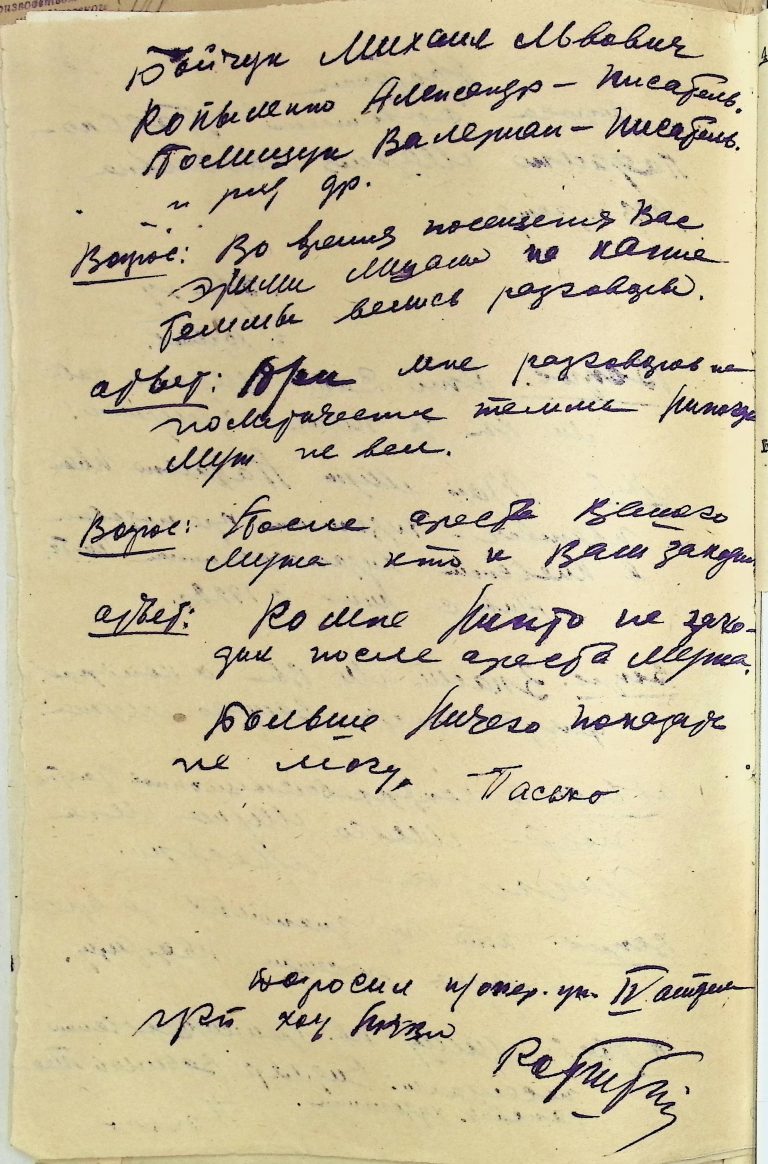 Бойчук Михаил Львович
Копыленко Александр – писатель.
Полищук Валериан – писатель.
и ряд др.
Вопрос: Во время посещения Вас
этими лицами на какие
темы велись разговоры.
Ответ: При мне разговоров на
политические темы никогда
муж не вел.
Вопрос: После ареста Вашего
мужа кто к Вам заходил
Ответ: Ко мне никто не захо-
дил после ареста мужа.
Больше ничего показать
не могу,
Пасько
Допросил п/опер. уп. IV отдела